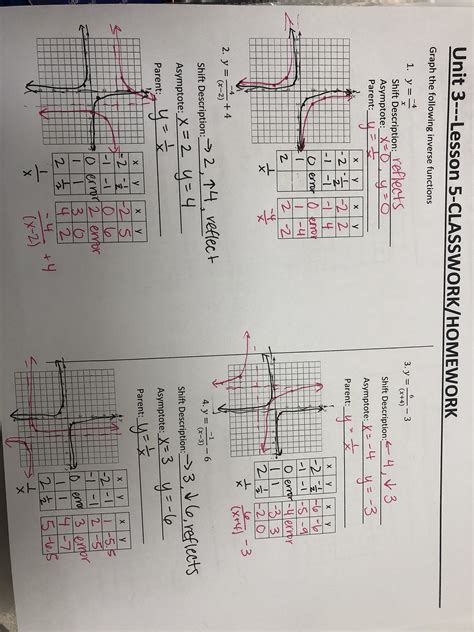 Unit 3---Lesson 5-CLASSWORK/HOMEWORK
Graph the following inverse functions
1. y = -4/x
Shift Description: reflects
Asymptote: x=0, y=0
Parent: y = 1/x
x y
-2 -1/2
-1 -1
0 error
1 1
2
1/x
x y
-2 2
-1 4
0 error
1 -4
2 -2
-4/x
2. y = -4/(x-2) + 4
Shift Description: → 2, ↑4, reflect
Asymptote: x = 2 y = 4
Parent: y = 1/x
x y
-2 -1/2
-1 -1
0 error
1 1
2 1/2
1/x
x y
-2 5
0 6
2 error
3 0
4 2
-4/(x-2) + 4
3. y = 6/(x+4) − 3
Shift Description: ← 4, ↓ 3
Asymptote: x = -4 y = -3
Parent: y = 1/x
x y
-2 -1/2
-1 -1
0 error
1 1
2 1/2
1/x
x y
-6 -6
-5 -9
-4 error
-3 3
-2 0
6/(x+4) -3
4. y = -1/(x-3) − 6
Shift Description: → 3 ↓ 6, reflects
Asymptote: x = 3 y = -6
Parent: y = 1/x
x y
-2 -1/2
-1 -1
0 error
1 1
2 1/2
1/x
x y
1 -5.5
2 -5
3 error
4 -7
5 -6.5